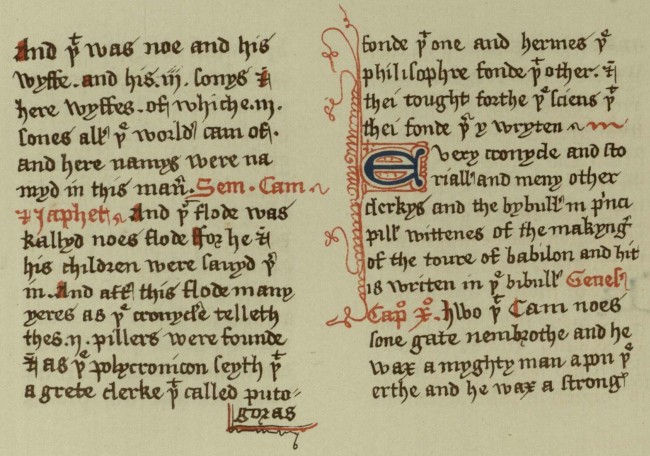 And yͭ was noe and his
wyffe. and his .iij. sonys ⁊
here wyffes. of whiche .iij.
sones all yᵉ world cam of.
and here namys were na
myd in this man̄. Sem. Cam
⁊ Japhet. And yͭ flode was
kallyd noes flode ffor he ⁊
his children were sauyd yͭ
in. And aft̄ this flode many
yeres as yᵉ cronycle telleth
thes .ij. pillers were founde
⁊ as yᵉ polycronicon seyth yͭ
a grete clerke yͭ called puto-
goras
fonde yͭ one and hermes yᵉ
philisophre fonde yͭ other. ⁊
thei tought forthe yᵉ sciens yͭ
thei fonde yͬ y wryten
Every cronycle and sto
riall and meny other
clerkys and the bybull in p̄nci
pill wittenes of the makyng
of the toure of babilon and hit
is writen in yᵉ bibull Genes
Capͦ xͦ. hwo yͭ Cam noes
sone gate nembrothe and he
wax a myghty man apon yᵉ
erthe and he wax a strong